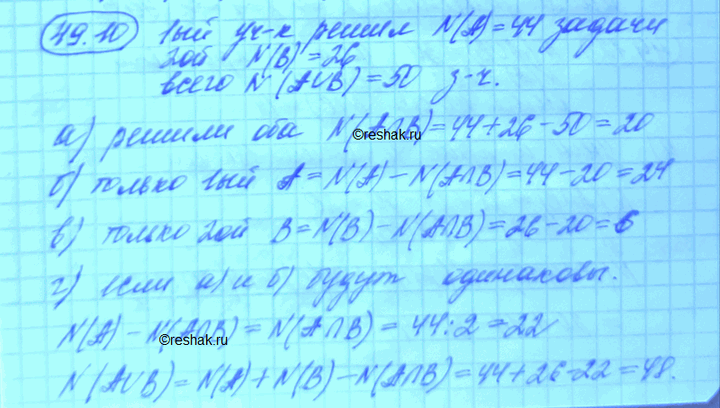 49.10 1ый уч-к решил N(A)=44 задачи
2ой N(B)=26
всего N(A∪B)=50 з-ч.
а) решили оба N(A∩B)=44+26-50=20
©reshak.ru
б) только 1ый A=N(A)-N(A∩B)=44-20=24
в) только 2ой B=N(B)-N(A∩B)=26-20=6
г) если а) и б) будут одинаковы.
N(A)-N(A∩B)=N(A∩B)=44:2=22
©reshak.ru
N(A∪B)=N(A)+N(B)-N(A∩B)=44+26-22=48.